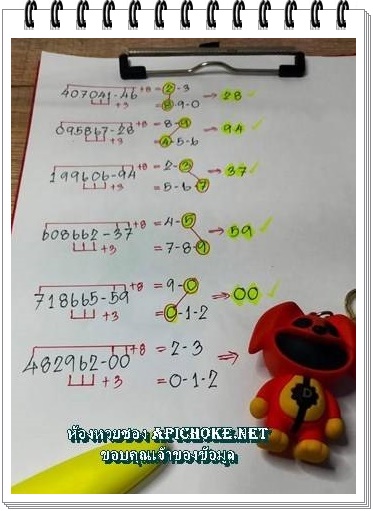 407041-46 +8 = 2-3
+3 = 8-9-0 → 28 ✓
095867-28 +8 = 8-9
+3 = 4-5-6 → 94 ✓
199606-94 +8 = 2-3
+3 = 5-6-7 → 37 ✓
608662-37 +8 = 4-5
+3 = 7-8-9 → 59 ✓
718665-59 +8 = 9-0
+3 = 0-1-2 → 00 ✓
482962-00 +8 = 2-3 →
+3 = 0-1-2
D
ห้องหวยซอง APICHOKE.NET
ขอบคุณเจ้าของข้อมูล